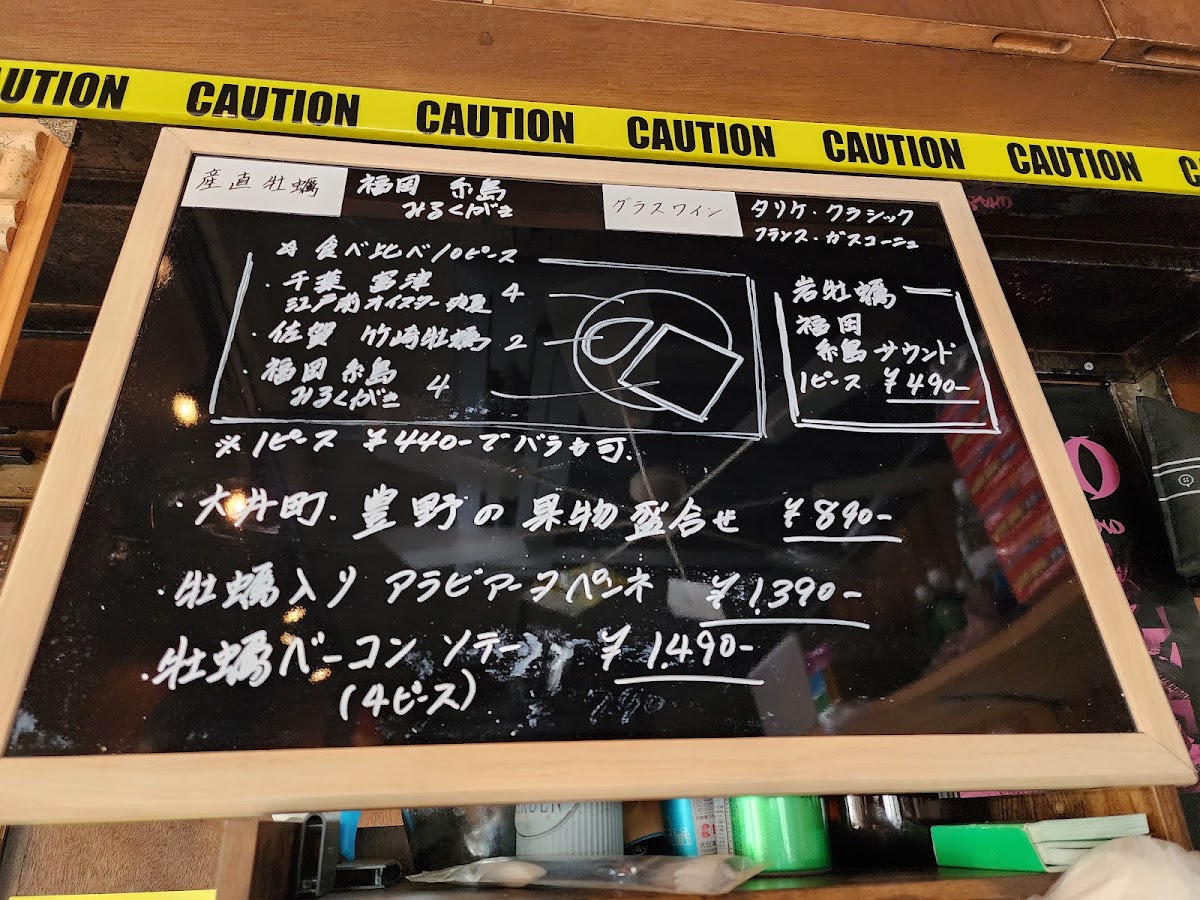 AUTION CAUTION CAUTION CAUTION CAUTION CAUTION C
産直牡蠣
福岡 糸島
みるくがき
グラスワイン
タリケ・クラシック
フランス・ガスコーニュ
食べ比べ10ピース
・千葉 富津 4
江戸前オイスター
・佐賀 竹崎牡蠣 2
・福岡 糸島
みるくがき 4
※1ピース ¥440-でバラも可.
岩牡蠣
福岡
糸島サウンド
1ピース ¥490-
・大井町.豊野の果物盛合せ ¥890-
・牡蠣入り アラビアータペンネ ¥1.390-
・牡蠣ベーコン ソテー ¥1.490-
(4ピース)